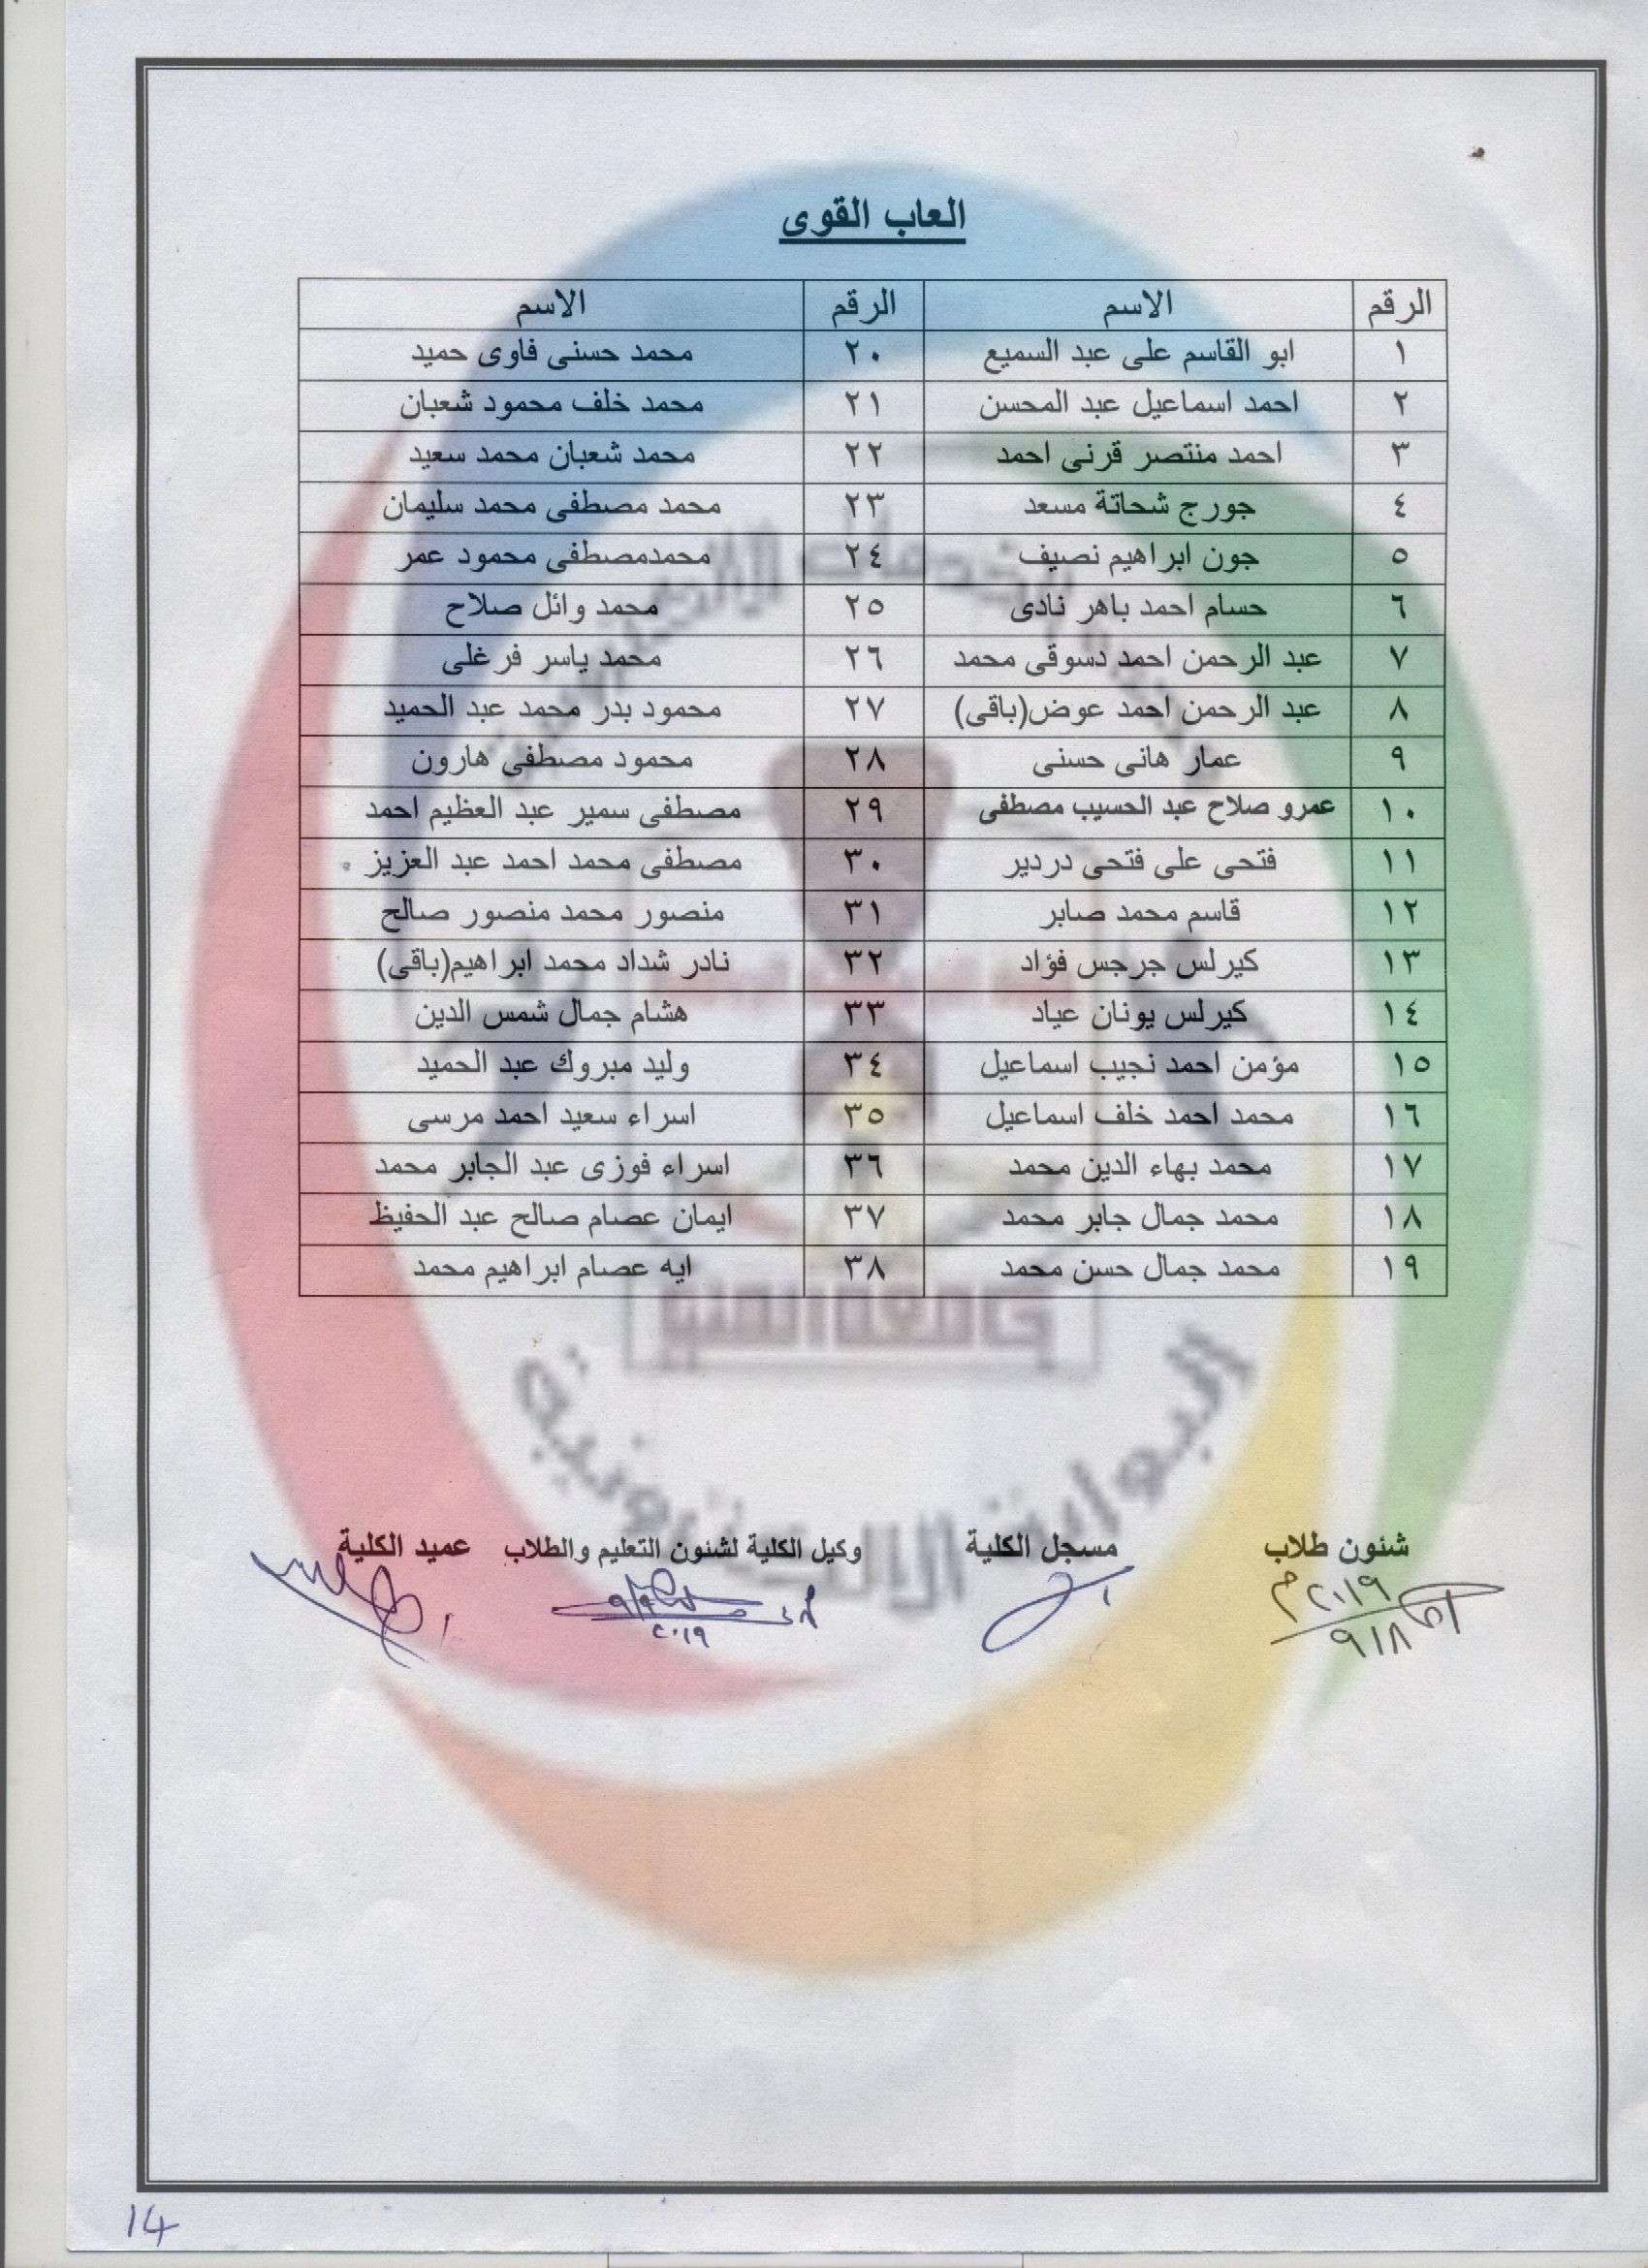 العاب القوى
الرقم الاسم الرقم الاسم
١ ابو القاسم على عبد السميع ٢٠ محمد حسنى فاوى حميد
٢ احمد اسماعيل عبد المحسن ٢١ محمد خلف محمود شعبان
٣ احمد منتصر قرنى احمد ٢٢ محمد شعبان محمد سعيد
٤ جورج شحاتة مسعد ٢٣ محمد مصطفى محمد سليمان
٥ جون ابراهيم نصيف ٢٤ محمدمصطفى محمود عمر
٦ حسام احمد باهر نادى ٢٥ محمد وائل صلاح
٧ عبد الرحمن احمد دسوقى محمد ٢٦ محمد ياسر فرغلى
٨ عبد الرحمن احمد عوض(باقى) ٢٧ محمود بدر محمد عبد الحميد
٩ عمار هانى حسنى ٢٨ محمود مصطفى هارون
١٠ عمرو صلاح عبد الحسيب مصطفى ٢٩ مصطفى سمير عبد العظيم احمد
١١ فتحى على فتحى دردير ٣٠ مصطفى محمد احمد عبد العزيز
١٢ قاسم محمد صابر ٣١ منصور محمد منصور صالح
١٣ كيرلس جرجس فؤاد ٣٢ نادر شداد محمد ابراهيم(باقى)
١٤ كيرلس يونان عياد ٣٣ هشام جمال شمس الدين
١٥ مؤمن احمد نجيب اسماعيل ٣٤ وليد مبروك عبد الحميد
١٦ محمد احمد خلف اسماعيل ٣٥ اسراء سعيد احمد مرسى
١٧ محمد بهاء الدين محمد ٣٦ اسراء فوزى عبد الجابر محمد
١٨ محمد جمال جابر محمد ٣٧ ايمان عصام صالح عبد الحفيظ
١٩ محمد جمال حسن محمد ٣٨ ايه عصام ابراهيم محمد
جامعة المنيا
البوابة الالكترونية
شئون طلاب مسجل الكلية وكيل الكلية لشئون التعليم والطلاب عميد الكلية
٢٠١٩م
٩/٨
٢٠١٩
14